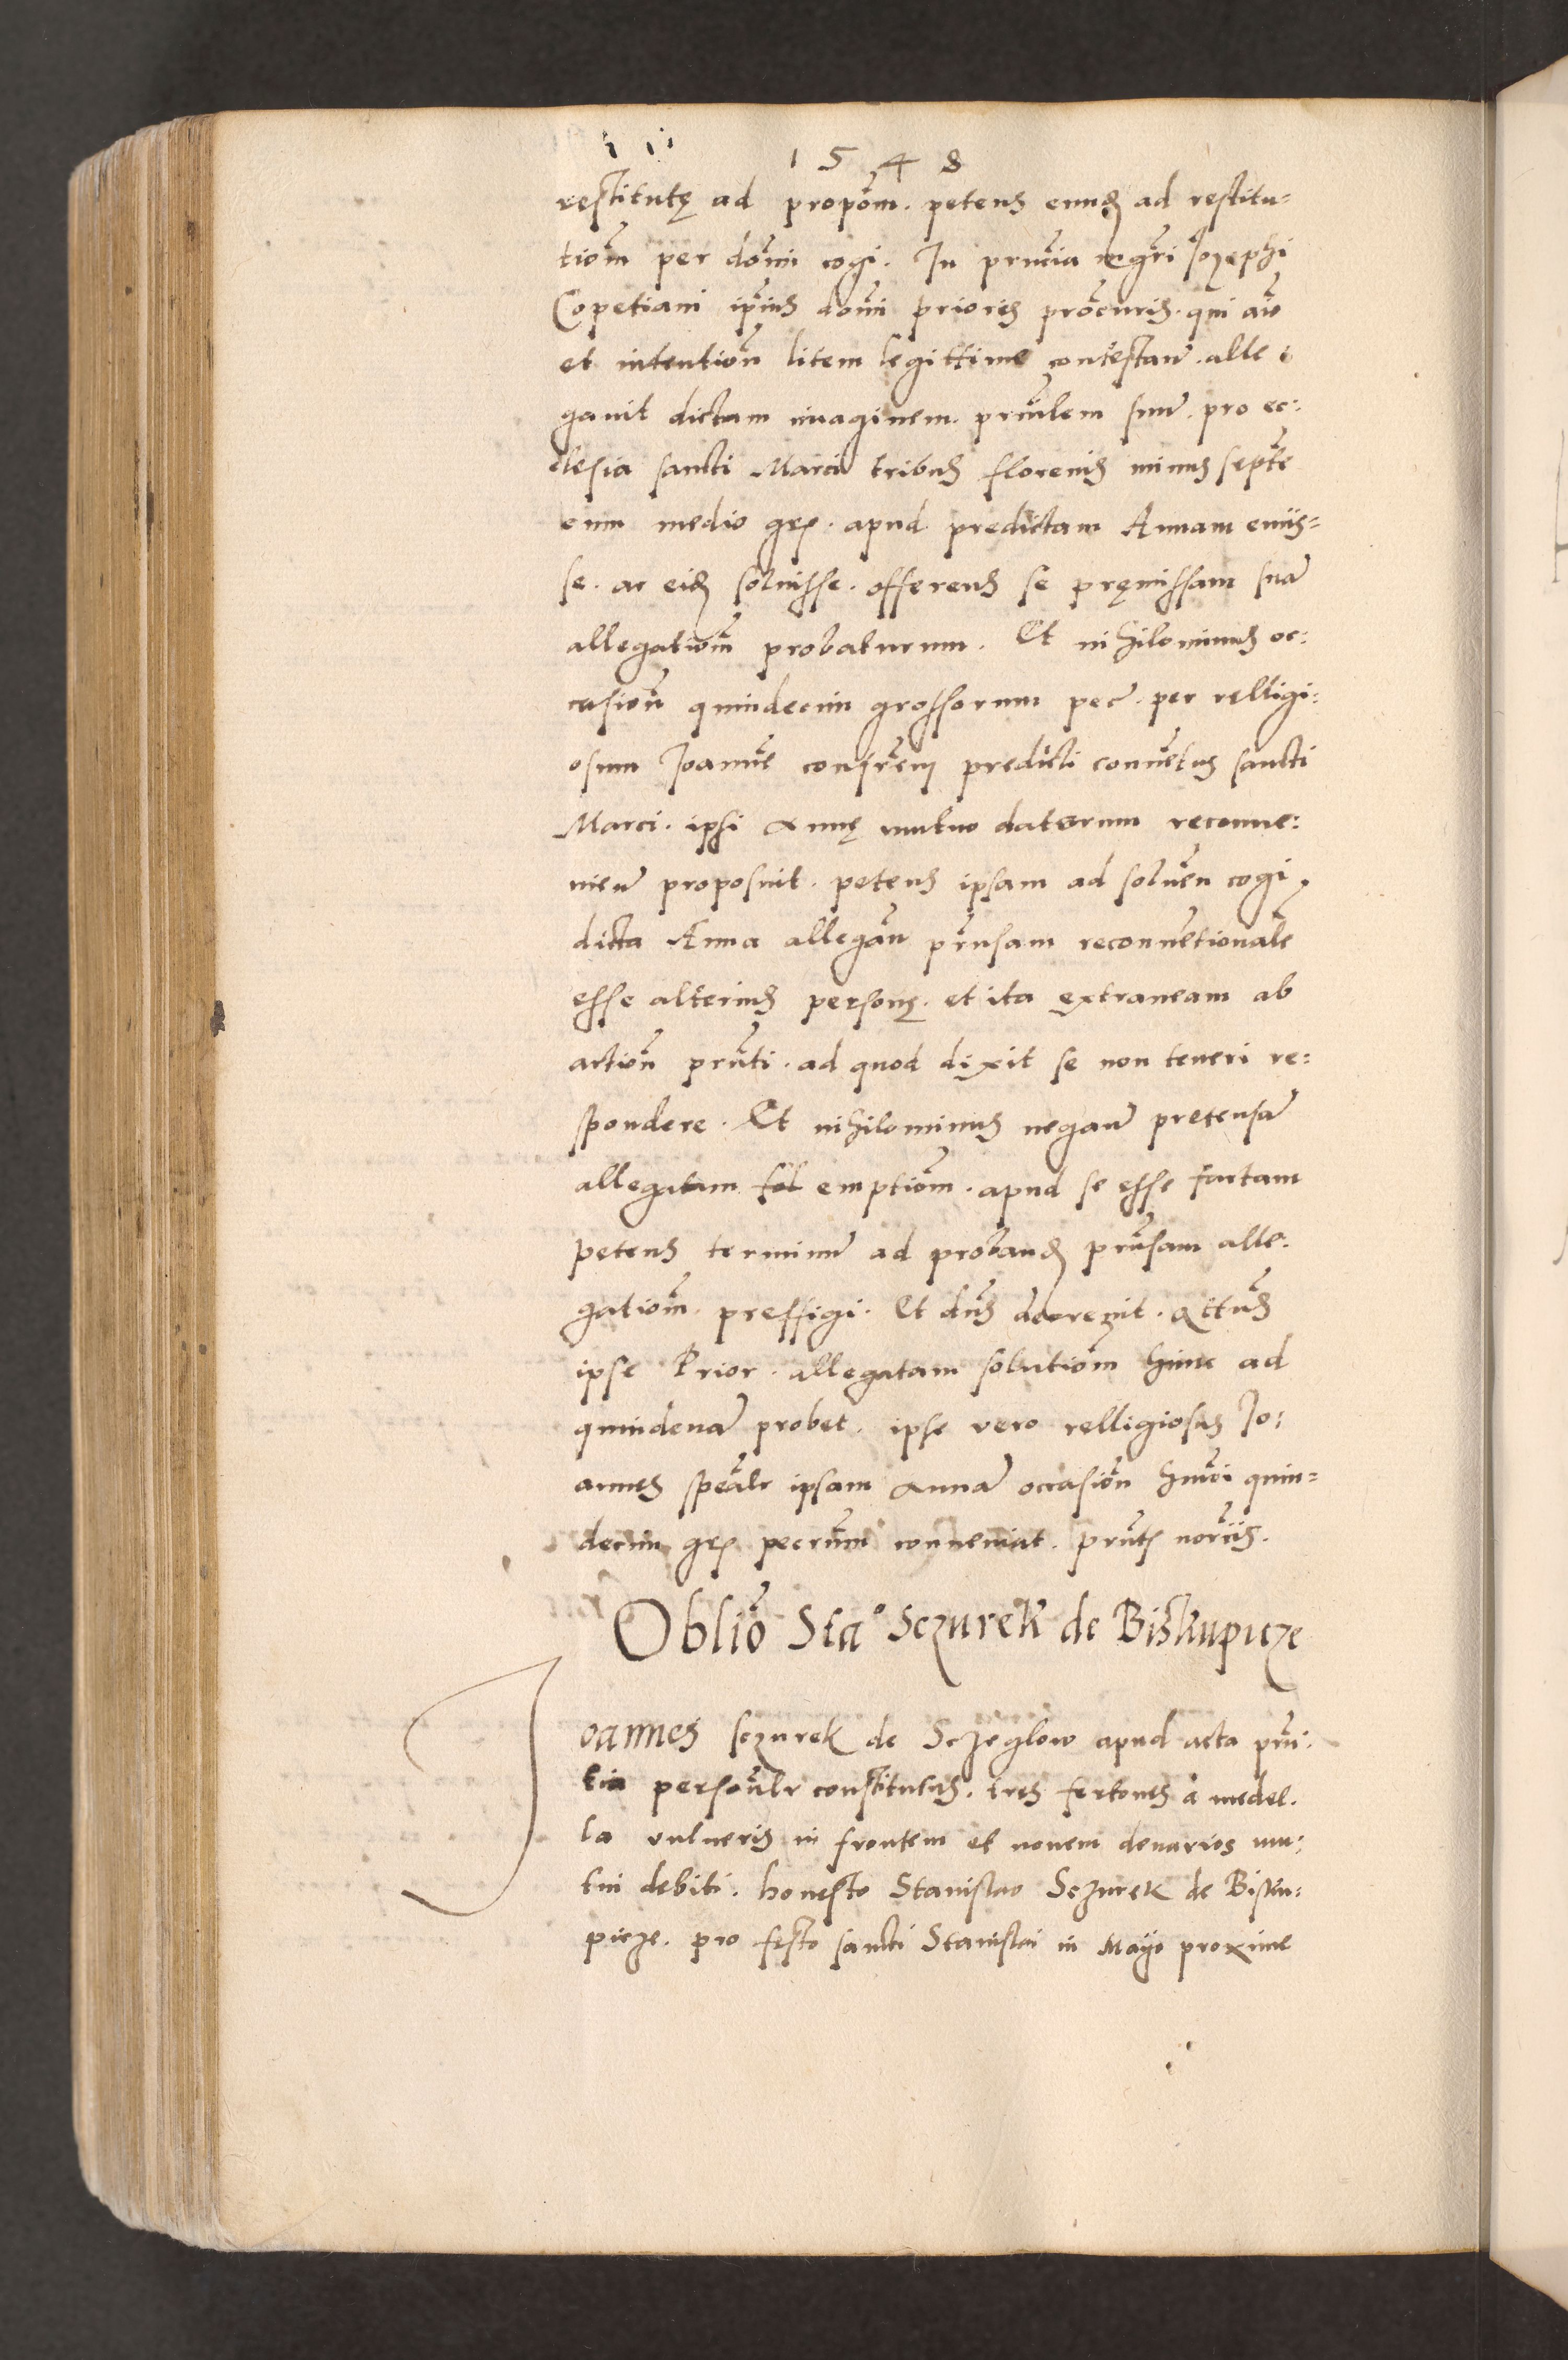 1548
restitutę ad propõm. petens eundẽ ad restitu-
tiom̃ per dom̃i cogi. In pñtia mgr̃i Iozephi
Copetiani ipĩus dom̃i prioris proc̃uris. qui
et intentioñ litem legittime contestañ. alle-
gavit dictam imaginem. pro ec:
clesia sancti Marci tribus florenis minus septẽ
cum medio grs. apud predictam Annam emis=
se. ac eidẽ solvisse. offerens se pręmissam suã
allegatiom̃ probaturum. Et nihilominus oc:
casioñ quindecim grossorum pec̃. per relligi:
osum Joannẽ confr̃em predicti convẽtus sancti
Marci. ipsi Annę mutuo datorum reconve:
nieñ proposuit. petens ipsam ad solveñ cogi,
dicta Anna allegañ pr̃nsam reconvẽtionalẽ
esse alterius personę. et ita extraneam ab
actioñ pñti. ad quod dixit se non teneri re:
spondere. Et nihilominus negañ pretensã
allegatam emptiom̃. apud se esse factam
petens terminũ ad probandẽ pr̃nsam alle:
gatiom̃. preffigi. Et dñs decrevit. qͣtũs
ipse Prior. allegatam solutiom̃ hinc ad
quindenã probet. ipse vero relligiosus Jo:
annes spẽalr ipsam Annã occasioñ hm̃õi quin=
decim grs pecr̃um conveniat. pñts
Obliõ Staº Sczurek de Biskupicze
Joannes sczurek de Sczeglow apud acta pñ.
tia persoñlr constitutus. tres fertones a medel.
la vulneris in frontem et novem denarios mu:
tui debiti. honesto Stanislao Sczurek de Bisku:
picze. pro festo sancti Stanislai in Mayo proxime